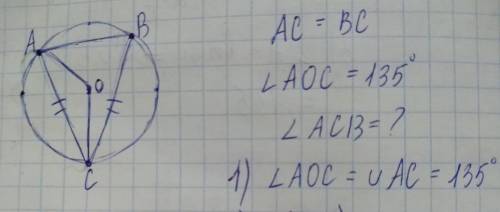 A
B
O
C
AC = BC
∠AOC = 135°
∠ACB = ?
1) ∠AOC = ∪AC = 135°